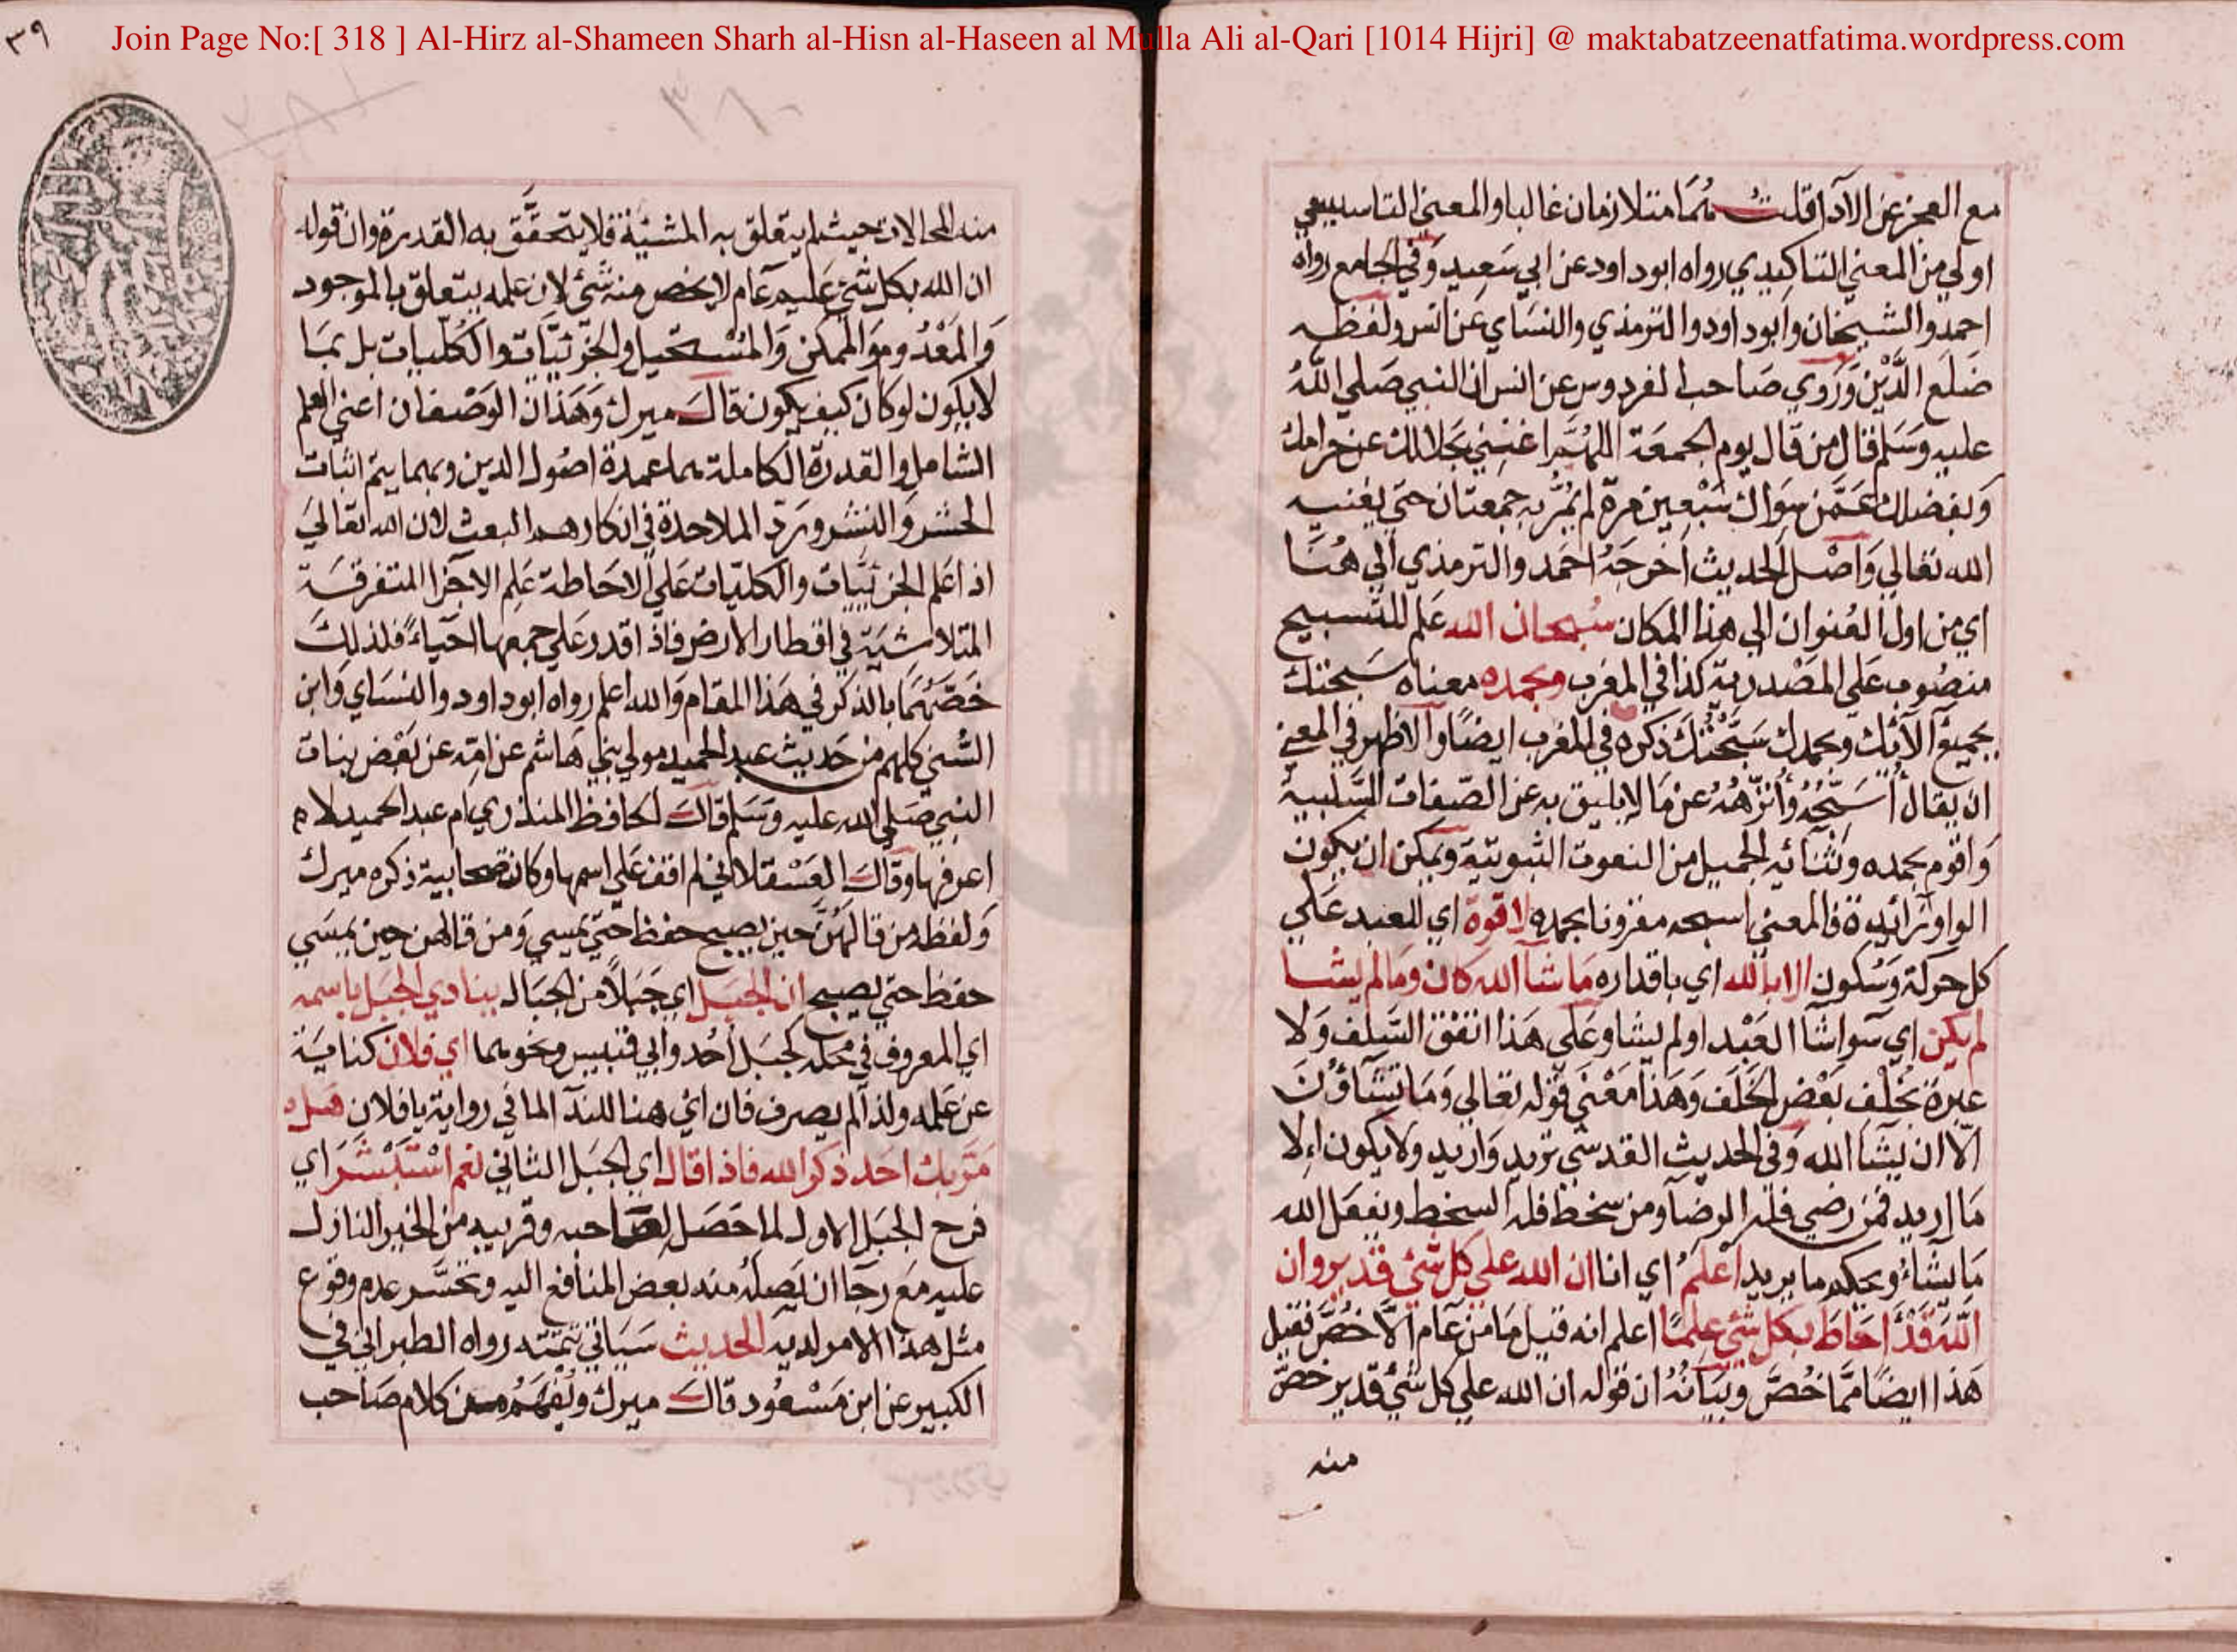 Join Page No:[ 318 ] Al-Hirz al-Shameen Sharh al-Hisn al-Haseen al Mulla Ali al-Qari [1014 Hijri] @ maktabatzeenatfatima.wordpress.com
٣٩
مع العجز عن الادا قلت هما متلازمان غالبا والمعني التاسيسي
اولي من المعني التاكيدي رواه ابو داود عن ابي سعيد وفي الجامع رواه
احمد والشيخان وابو داود والترمذي والنساي عن انس ولفظه
ضلع الدين وروي صاحب الفردوس عن انس ان النبي صلي الله
عليه وسلم قال من قال يوم الجمعة اللهم اغنني بحلالك عن حرامك
وبفضلك عمن سواك سبعين مرة لم يمر به جمعتان حتي يغنيه
الله تعالي واصل الحديث اخرجه احمد والترمذي الي هنا
اي من اول العنوان الي هذا المكان سبحان الله علم للتسبيح
منصوب علي المصدرية كذا في المغرب وبحمده معناه سبحتك
بجميع آلائك وبحمدك سبحتك ذكره في المغرب ايضا والاظهر في المعني
ان يقال أسبحه وأنزهه عن ما لا يليق به عن الصفات السلبية
واقوم بحمده وثنائه الجميل من النعوت الثبوتية ويمكن ان يكون
الواو زائدة فالمعني اسبحه مقرونا بحمده لا قوة اي للعبد علي
كل حركة وسكون الا بالله اي باقداره ما شا الله كان وما لم يشا
لم يكن اي سوا شا العبد او لم يشا وعلي هذا اتفق السلف ولا
عبرة بخلف بعض الخلف وهذا معني قوله تعالي وما تشاؤن
الا ان يشا الله وفي الحديث القدسي تريد واريد ولا يكون الا
ما اريد فمن رضي فله الرضا ومن سخط فله السخط ويفعل الله
ما يشاء ويحكم ما يريد اعلم اي انا ان الله علي كل شي قدير وان
الله قد احاط بكل شي علما اعلم انه قيل ما من عام الا خص فقيل
هذا ايضا مما خص وبيانه ان قوله ان الله علي كل شي قدير خص
منه
منه المحالات حيث لم يتعلق به المشيئة فلا يتحقق به القدرة وان قوله
ان الله بكل شي عليم عام لا يخص منه شي لان علمه يتعلق بالموجود
والمعدوم والممكن والمستحيل والجزئيات والكليات بل بما
لا يكون لو كان كيف يكون قال ميرك وهذان الوصفان اعني العلم
الشامل والقدرة الكاملة هما عمدة اصول الدين وبهما يتم اثبات
الحشر والنشر ويرد الملاحدة في انكارهم البعث لان الله تعالي
اذا علم الجزئيات والكليات علي الاحاطة علم الاجزا المتفرقة
المتلاشية في اقطار الارض فاذا قدر علي جمعها احياء فلذلك
خصهما بالذكر في هذا المقام والله اعلم رواه ابو داود والنساي وابن
السني كلهم من حديث عبد الحميد مولي بني هاشم عن امه عن بعض بنات
النبي صلي الله عليه وسلم قال الحافظ المنذري ام عبد الحميد لا
اعرفها وقال العسقلاني لم اقف علي اسمها وكان صحابية ذكره ميرك
ولفظه من قالهن حين يصبح حفظ حتي يمسي ومن قالهن حين يمسي
حفظ حتي يصبح ان الجبل اي جبلا من الجبال ينادي الجبل باسمه
اي المعروف في محله كجبل أحد وابي قبيس ونحوهما اي فلان كناية
عن علمه ولذا لم يصرف فان اي هنا للندآ لما في رواية يا فلان هل
مر بك احد ذكر الله فاذا قال اي الجبل الثاني نعم استبشر اي
فرح الجبل الاول لما حصل لصاحبه وقريبه من الخير النازل
عليه مع رجا ان يصله منه بعض المنافع اليه وتحسر عدم وقوع
مثل هذا الامر لديه الحديث سياتي تتمته رواه الطبراني في
الكبير عن ابن مسعود قال ميرك ويفهم من كلام صاحب